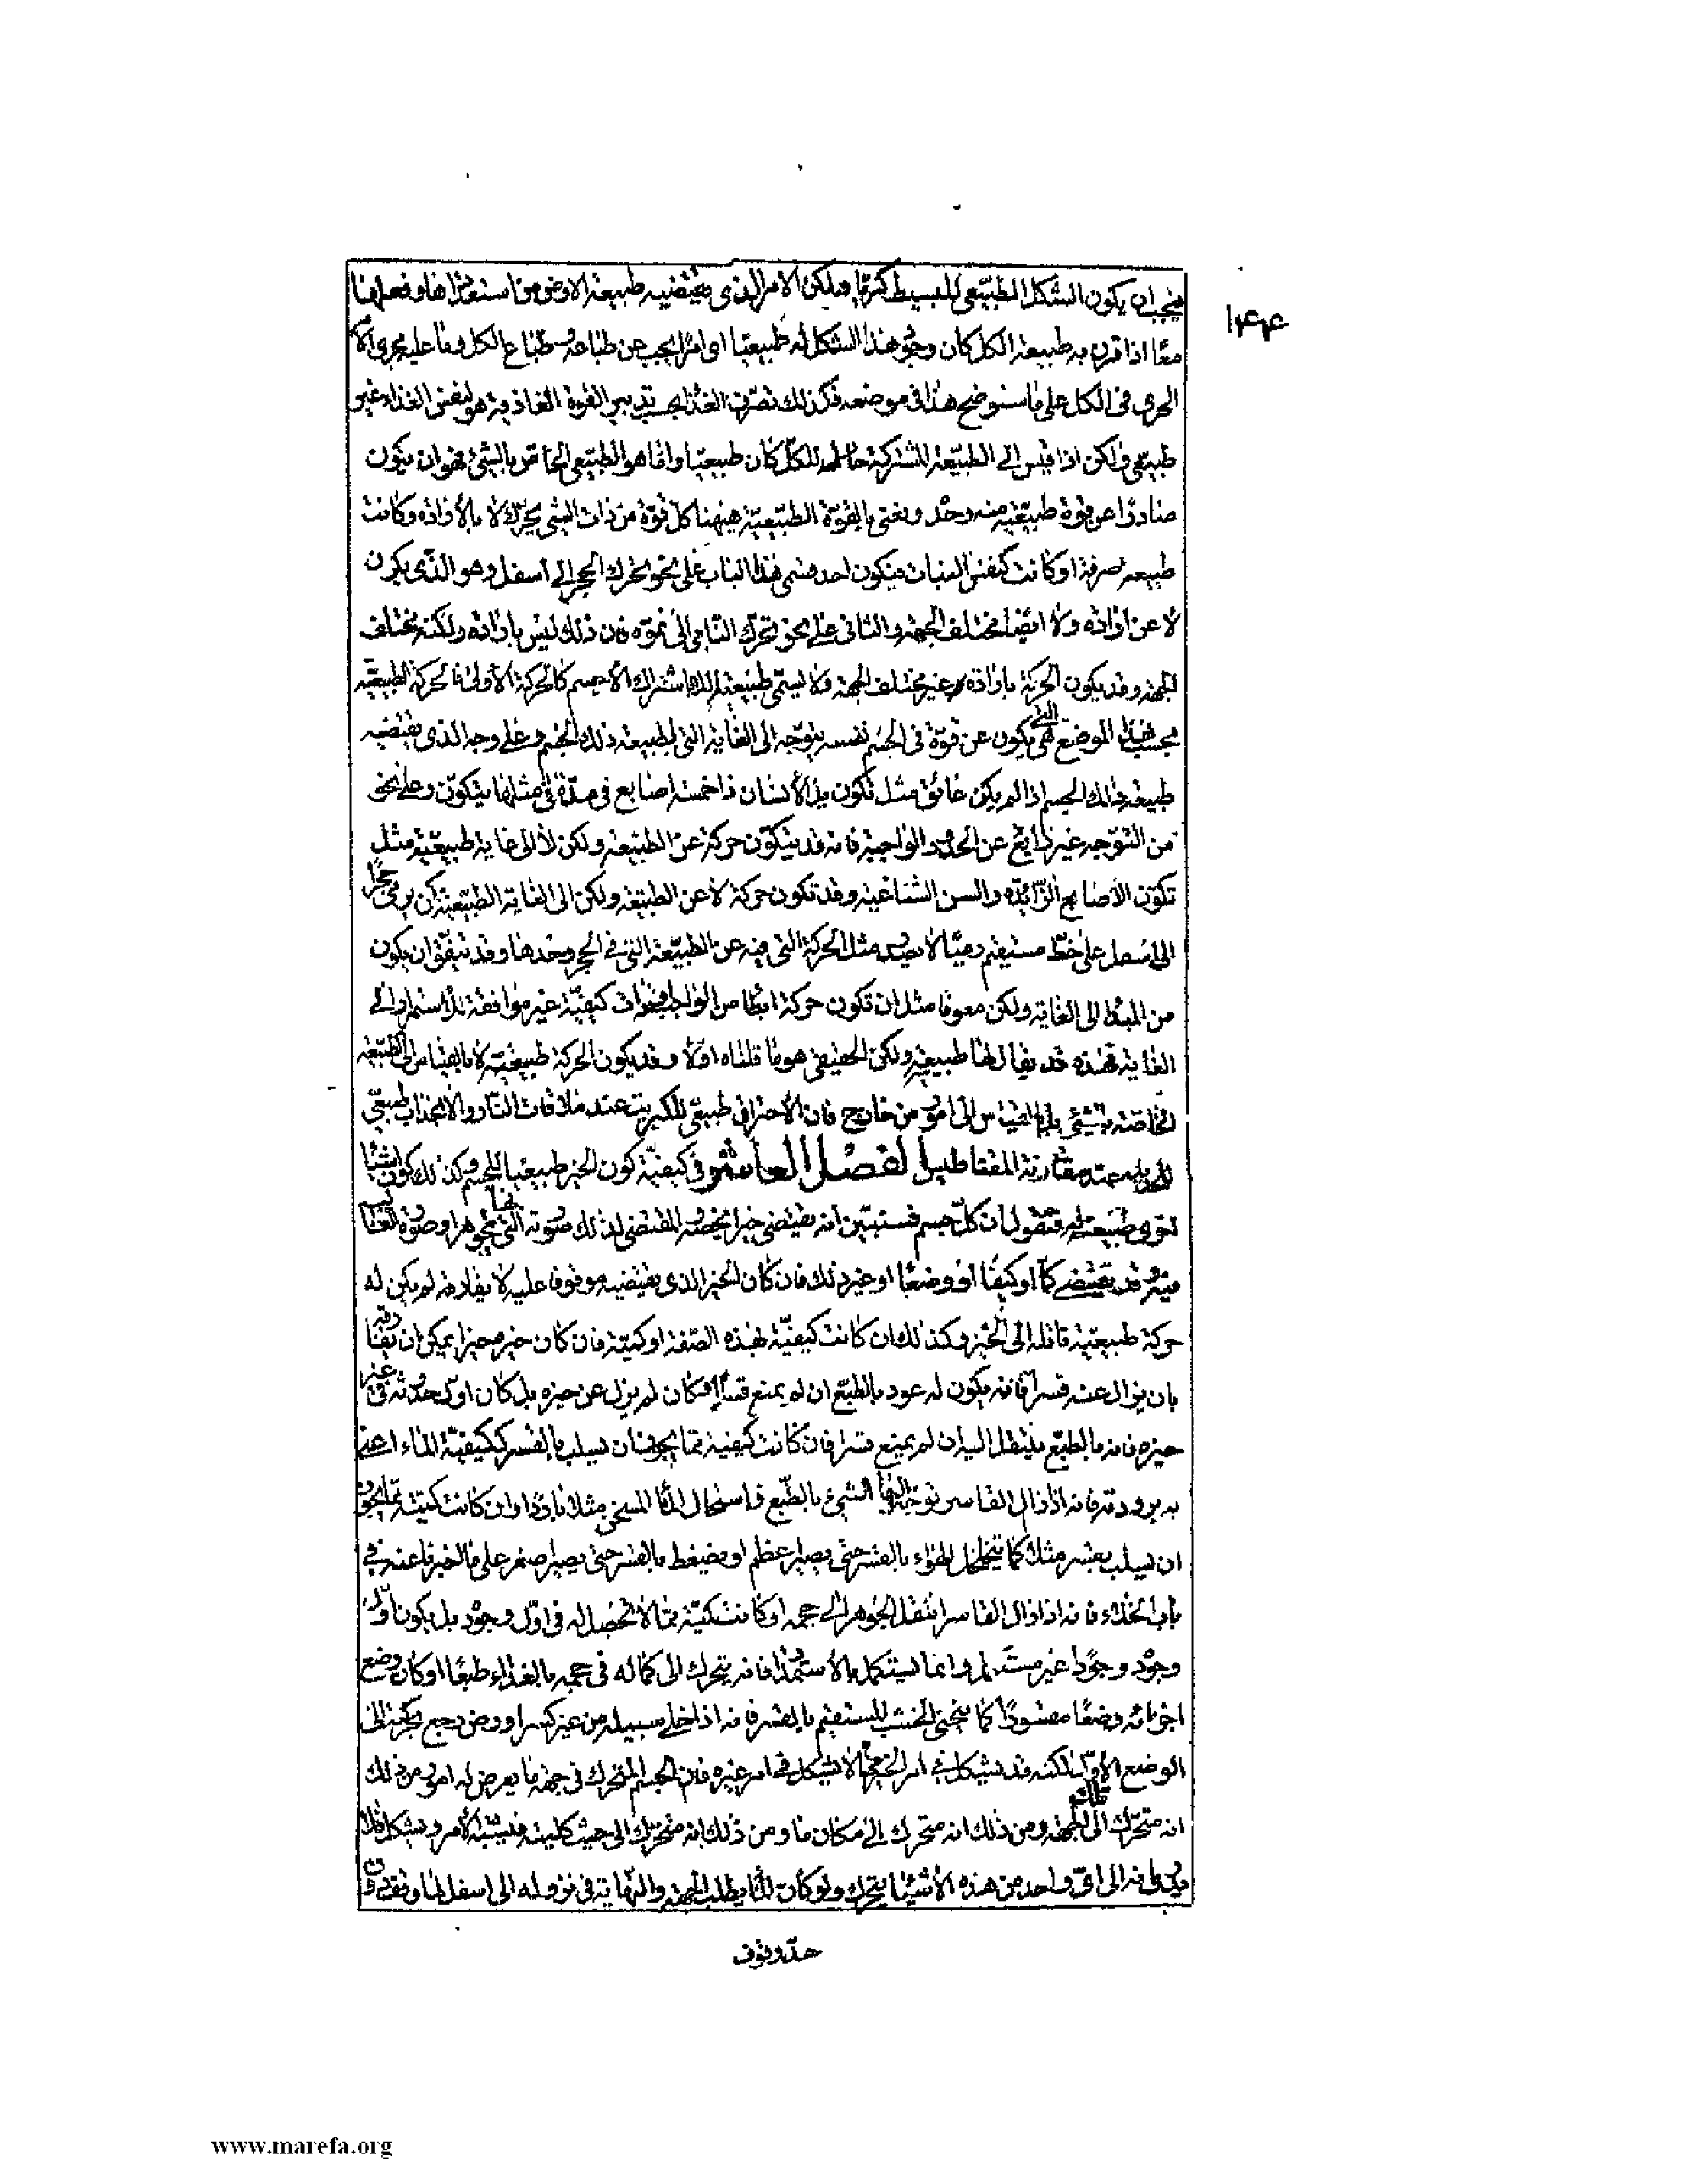 ١٤٤
فيجب ان يكون الشكل الطبيعى للبسيط كريا ولكن الامر الذى يقتضيه طبيعة الارض من
معا اذا قرن به طبيعة الكل كان وجود هذا الشكل له طبيعيا اى امرا يجب عن طباعه و طباع الكل وما عليه مجرى الامر
الجزئى فى الكل على ما سنوضح هذا فى موضعه فكذلك تصرف الغذاء بحسب تدبير القوة الغاذية هو لنفس الغذاء غير
طبيعى ولكن اذا قيس الى الطبيعة المشتركة للكل كان طبيعيا واما هو الطبيعى الخاص بالشئ فهو ان يكون
صادرا عن قوة طبيعية منه وحده ونعنى بالقوة الطبيعية هيهنا كل قوة من ذات الشئ يحرك لا بالارادة وكانت
طبيعة صرفة او كانت كنفس النبات فيكون احد قسمى هذا الباب على نحو تحرك الحجر الى اسفل وهو الذى يكون
لا عن ارادة ولا ايضا مختلف الجهة والثانى على نحو تحرك النامى الى نموه فان ذلك ليس بارادة ولكنه مختلف
الجهة وقد يكون الحركة بارادة وغير مختلف الجهة ولا يسمى طبيعة الا باشتراك الاسم كالحركة الاولى فالحركة الطبيعية
بحسب هذا الموضع هى التى يكون عن قوة فى الجسم نفسه يتوجه الى الغاية التى لطبيعة ذلك الجسم وعلى وجه الذى يقتضيه
طبيعة ذلك الجسم اذا لم يكن عائق مثل تكون يد الانسان ذا خمسة اصابع فى مدة فى مثلها يتكون وعلى نحو
من التوجه غير زايغ عن الحدود الواجبة فانه قد يتكون حركة عن الطبيعة ولكن لا الى غاية طبيعية مثل
تكون الاصابع الزائدة والسن الشاغية وقد تكون حركة لا عن الطبيعة ولكن الى الغاية الطبيعية كمن يرمى حجرا
الى اسفل على خط مستقيم رميا لا مثل الحركة التى فيه عن الطبيعة التى فى الحجر وحدها وقد يتفق ان يكون
من المبدا الى الغاية ولكن معوقا مثل ان تكون حركة ابطا من الواجب كيفية غير موافقة للاستمرار الى
الغاية فهذه قد يقال لها طبيعية ولكن الحقيقى هو ما قلناه اولا وقد يكون الحركة طبيعية لا بالقياس الى الطبيعة
الخاصة بشئ بل بالقياس الى امور من خارج فان الاحتراق طبيعى للكبريت عند ملاقات النار والانجذاب طبيعى
للحديد عند مقارنة المغناطيس الفصل العاشر فى كيفية كون الحيز طبيعيا للجسم وكذلك كون اشياء
اخرى طبيعة له فنقول ان كل جسم فسنبين انه يقتضى حيزا يخصه المقتضى لذلك صورته التى بها يتجوهر او صورة الغالب
فيه وقد يقتضى كما او كيفا او وضعا او غير ذلك فان كان الحيز الذى يقتضيه موقوفا عليه لا يفارقه لم يكن له
حركة طبيعية ناقلة الى الحيز وكذلك ان كانت كيفية بهذه الصفة او كمية فان كان حيزه حيزا يمكن ان يفارقه
بان يزال عنه قسرا فانه يكون له عود بالطبع ان لم يمنع قسرا وان كان لم يزل عن حيزه بل كان اول حدوثه فى غير
حيزه فانه بالطبع ينتقل اليه ان لم يمنع قسرا فان كانت كيفية مما يجوز ان يسلب بالقسر ككيفية الماء اعنى
به برودته فانه اذا زال القاسر توجه اليها الشئ بالطبع فاستحال الماء المسخن مثلا باردا وان كانت كميته مما يجوز
ان يسلب بقسر مثلا كما يتخلخل الهواء بالقسر حتى يصير اعظم او يضغط بالقسر حتى يصير اصغر على ما اخبرنا عنه فى
باب الخلاء فانه اذا زال القاسر انتقل الجوهر الى حجمه او كانت كمية مما لا تحصل له فى اول وجوده بل يكون اول
وجوده وجودا غير مستكمل وانما يستكمل بالاستمداد فانه يتحرك الى كماله فى حجمه بالغذاء طبعا او كان وضع
اجزائه وضعا مقسورا كما ينحنى الخشب المستقيم بالقسر فانه اذا خلى سبيله من غير كسر او رض رجع بحركة الى
الوضع الاول لكنه قد يشكل فى امر الحيز ما لا يشكل فى امر غيره فان الجسم المتحرك فى جهة ما يعرض له امور من ذلك
انه متحرك الى تلك الجهة ومن ذلك انه متحرك الى مكان ما ومن ذلك انه متحرك الى حيث كليته فيشتبه الامر ويشكل
فى انه الى اى واحد من هذه الاشياء يتحرك ولو كان الماء يطلب الجهة والنهاية فى نزوله الى اسفل لما
حد وقوف
www.marefa.org